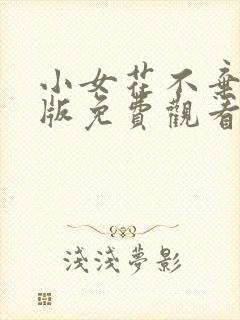 小女花不棄
版免費觀看
淺淺夢影